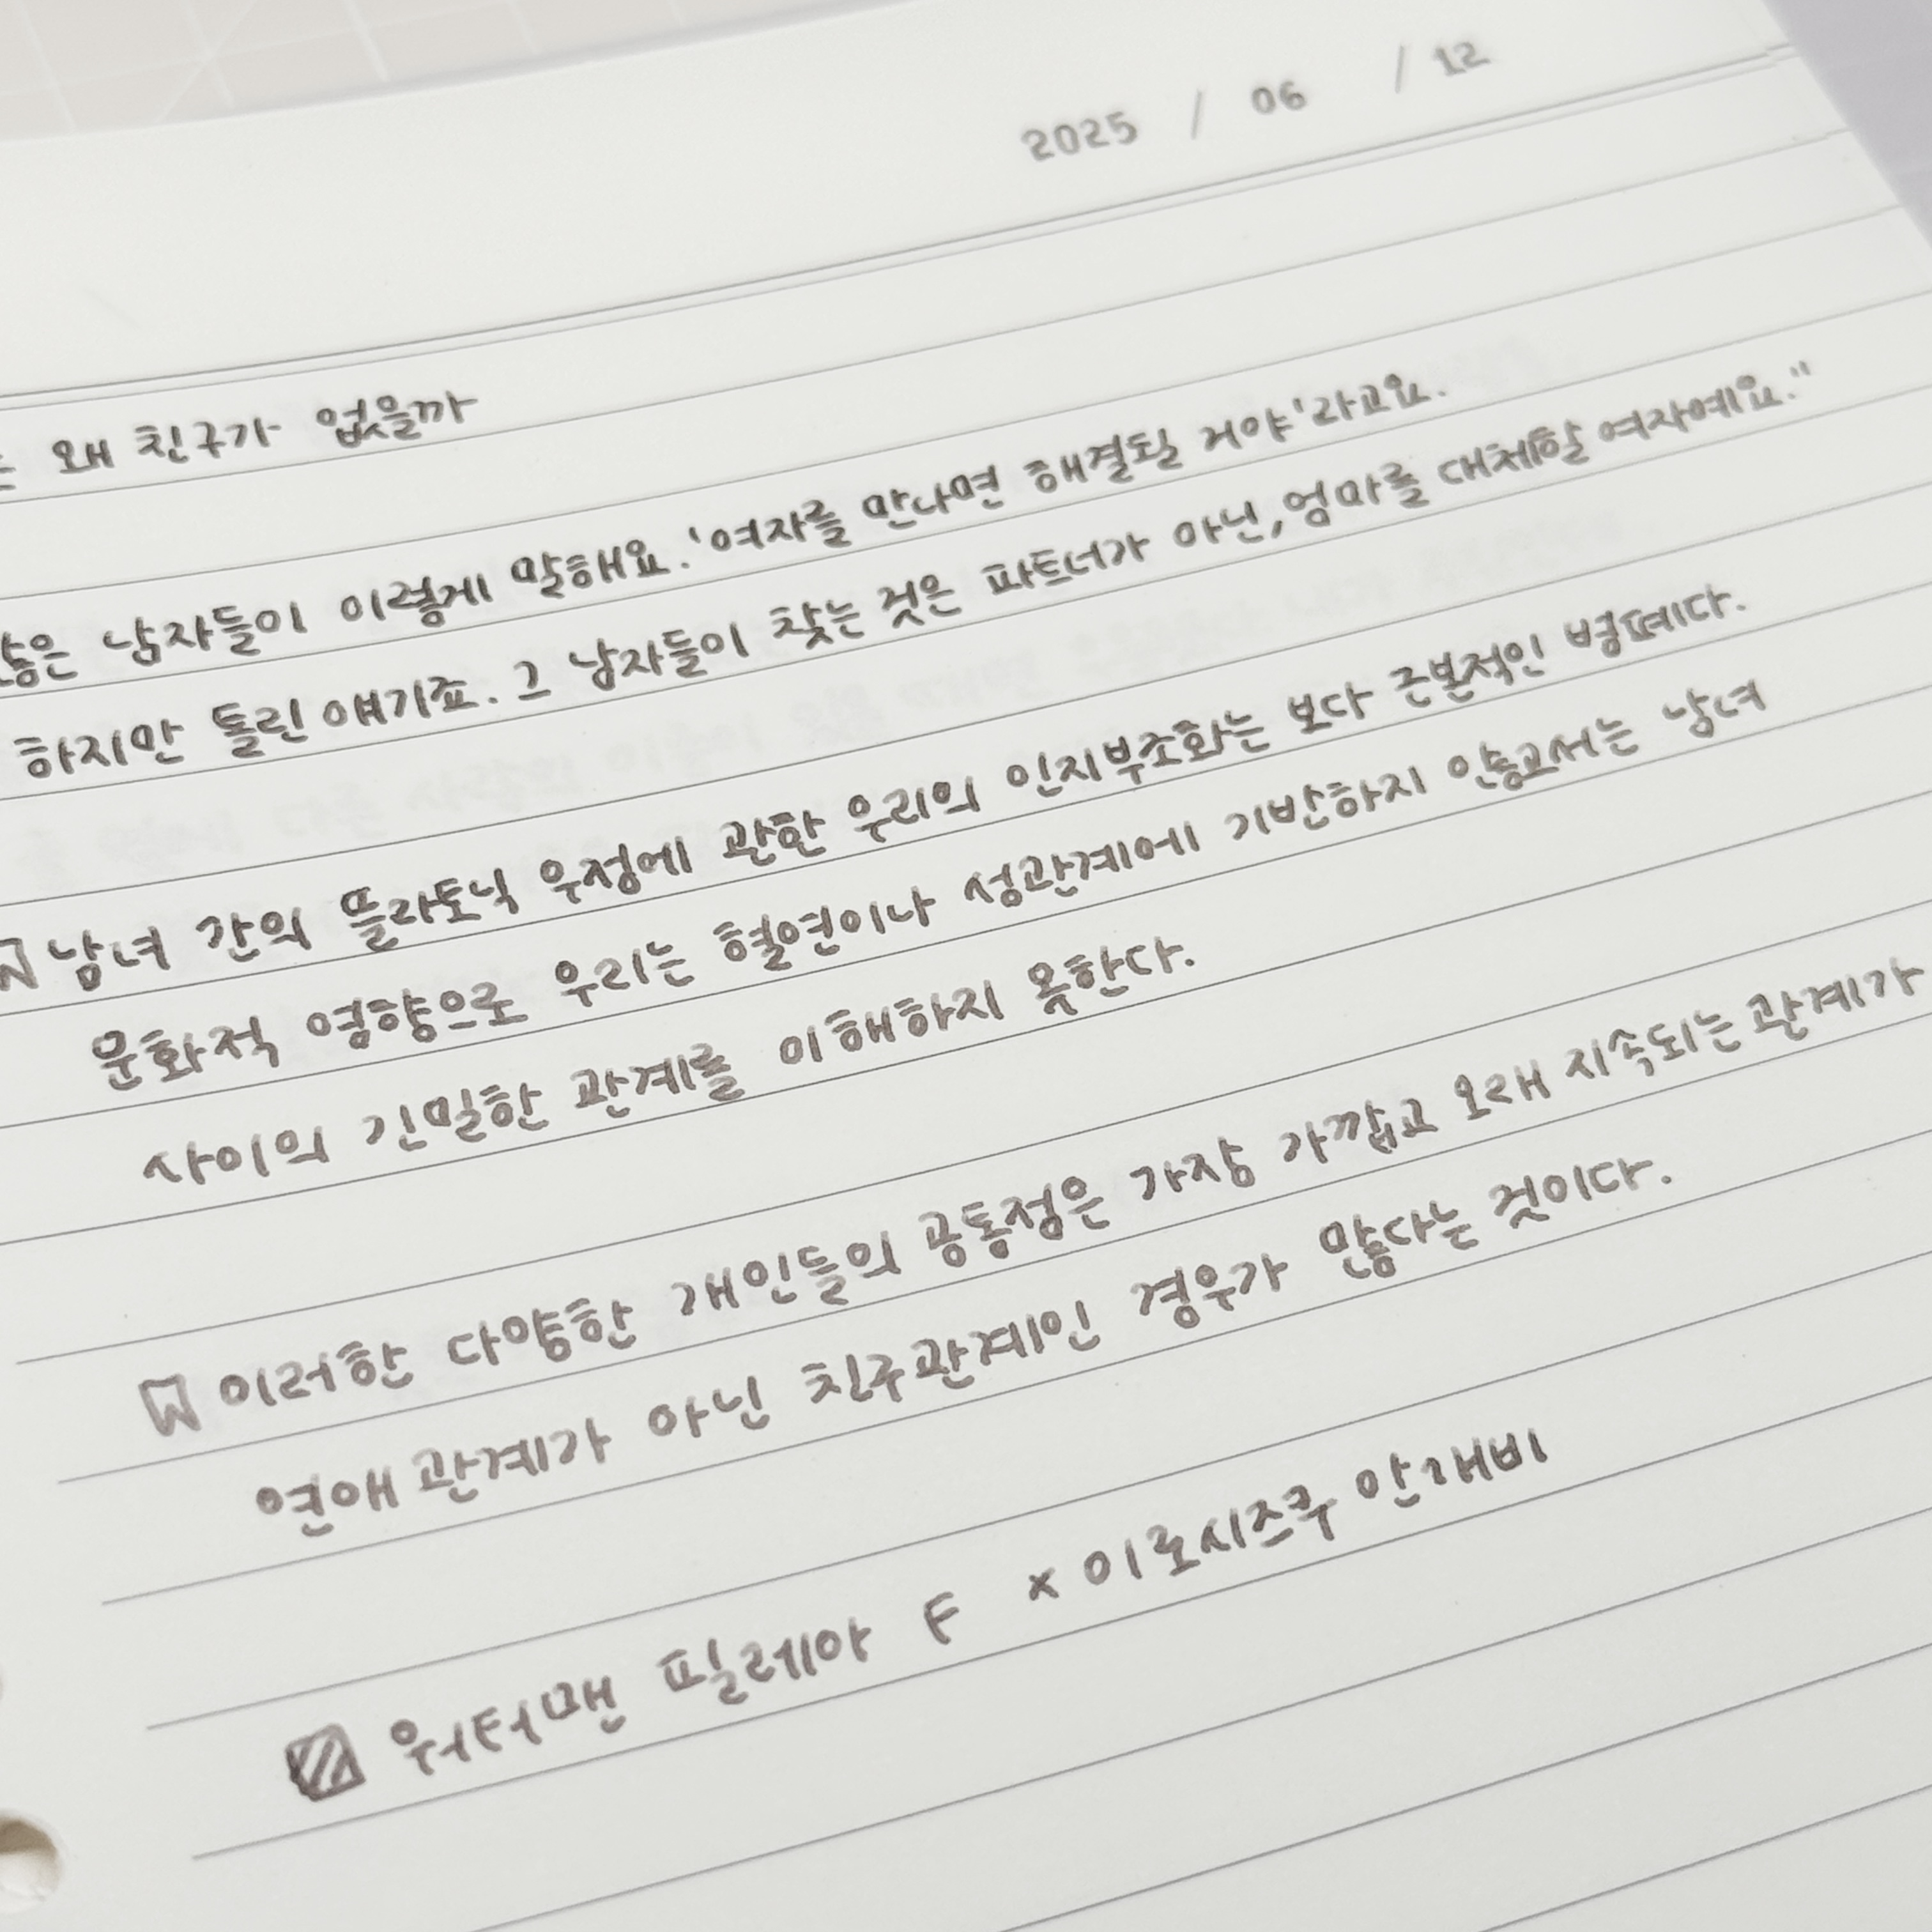 2025 / 06 / 12
왜 친구가 없을까
많은 남자들이 이렇게 말해요. '여자를 만나면 해결될 거야'라고요.
하지만 틀린 얘기죠. 그 남자들이 찾는 것은 파트너가 아닌, 엄마를 대체할 여자예요."
남녀 간의 플라토닉 우정에 관한 우리의 인지부조화는 보다 근본적인 병폐다.
문화적 영향으로 우리는 혈연이나 성관계에 기반하지 않고서는 남녀
사이의 긴밀한 관계를 이해하지 못한다.
이러한 다양한 개인들의 공통점은 가장 가깝고 오래 지속되는 관계가
연애 관계가 아닌 친구관계인 경우가 많다는 것이다.
워터맨 필레아 F × 이로시즈쿠 안개비